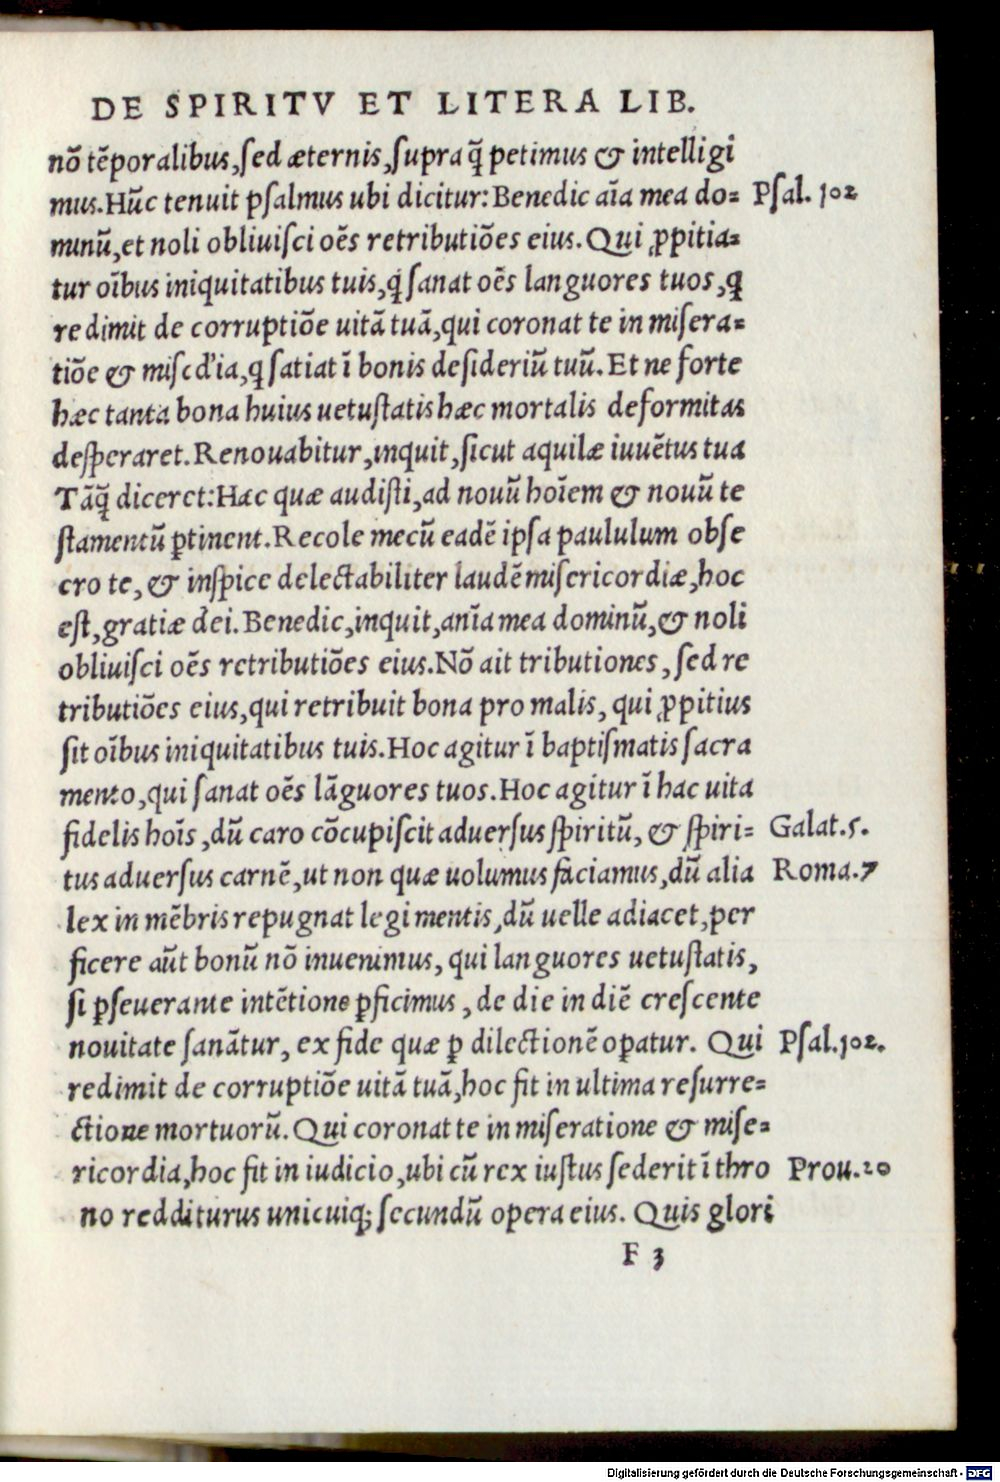 DE SPIRITV ET LITERA LIB.
nō tēporalibus, sed æternis, supra q̄ petimus & intelligi
mus. Hūc tenuit psalmus ubi dicitur: Benedic aīa mea do= Psal. 102
minū, et noli obliuisci oēs retributiōes eius. Qui ꝓpitia=
tur oībus iniquitatibus tuis, q̇ sanat oēs languores tuos, q
redimit de corruptiōe uitā tuā, qui coronat te in misera=
tiōe & misc d'ia, q satiat ī bonis desideriū tuū. Et ne forte
hæc tanta bona huius uetustatis hæc mortalis deformitas
desperaret. Renouabitur, inquit, sicut aquilæ iuuētus tua
Tāq̄ diceret: Hæc quæ audisti, ad nouū hoīem & nouū te
stamentū ꝑtinent. Recole mecū eadē ipsa paululum obse
cro te, & inspice delectabiliter laudē misericordiæ, hoc
est, gratiæ dei. Benedic, inquit, anīa mea dominū, & noli
obliuisci oēs retributiōes eius. Nō ait tributiones, sed re
tributiōes eius, qui retribuit bona pro malis, qui ꝓpitius
sit oībus iniquitatibus tuis. Hoc agitur ī baptismatis sacra
mento, qui sanat oēs lāguores tuos. Hoc agitur ī hac uita
fidelis hoīs, dū caro cōcupiscit aduersus spiritū, & spiri= Galat. 5.
tus aduersus carnē, ut non quæ uolumus faciamus, dū alia Roma. 7
lex in mēbris repugnat legi mentis, dū uelle adiacet, per
ficere aūt bonū nō inuenimus, qui languores uetustatis,
si ꝑseuerante intētione ꝑficimus, de die in diē crescente
nouitate sanātur, ex fide quæ ꝑ dilectionē oꝑatur. Qui Psal. 102.
redimit de corruptiōe uitā tuā, hoc fit in ultima resurre=
ctione mortuorū. Qui coronat te in miseratione & mise=
ricordia, hoc fit in iudicio, ubi cū rex iustus sederit ī thro Prou. 20
no redditurus unicuiq; secundū opera eius. Quis glori
F 3
Digitalisierung gefördert durch die Deutsche Forschungsgemeinschaft - DFG